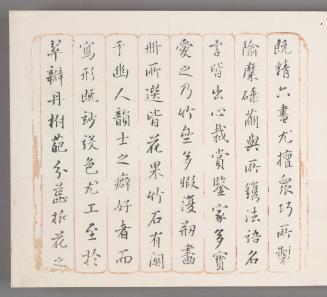 既精六書尤擅眾巧所製
隃糜硾繭與所鐫法語名
言皆出心裁賞鑒家多寶
愛之乃竹齋多暇畫
冊所選皆花果竹石有關
于幽人韻士之癖好者而
寫形既妙設色尤工至於
翠瓣丹柎葩分蕊折花之